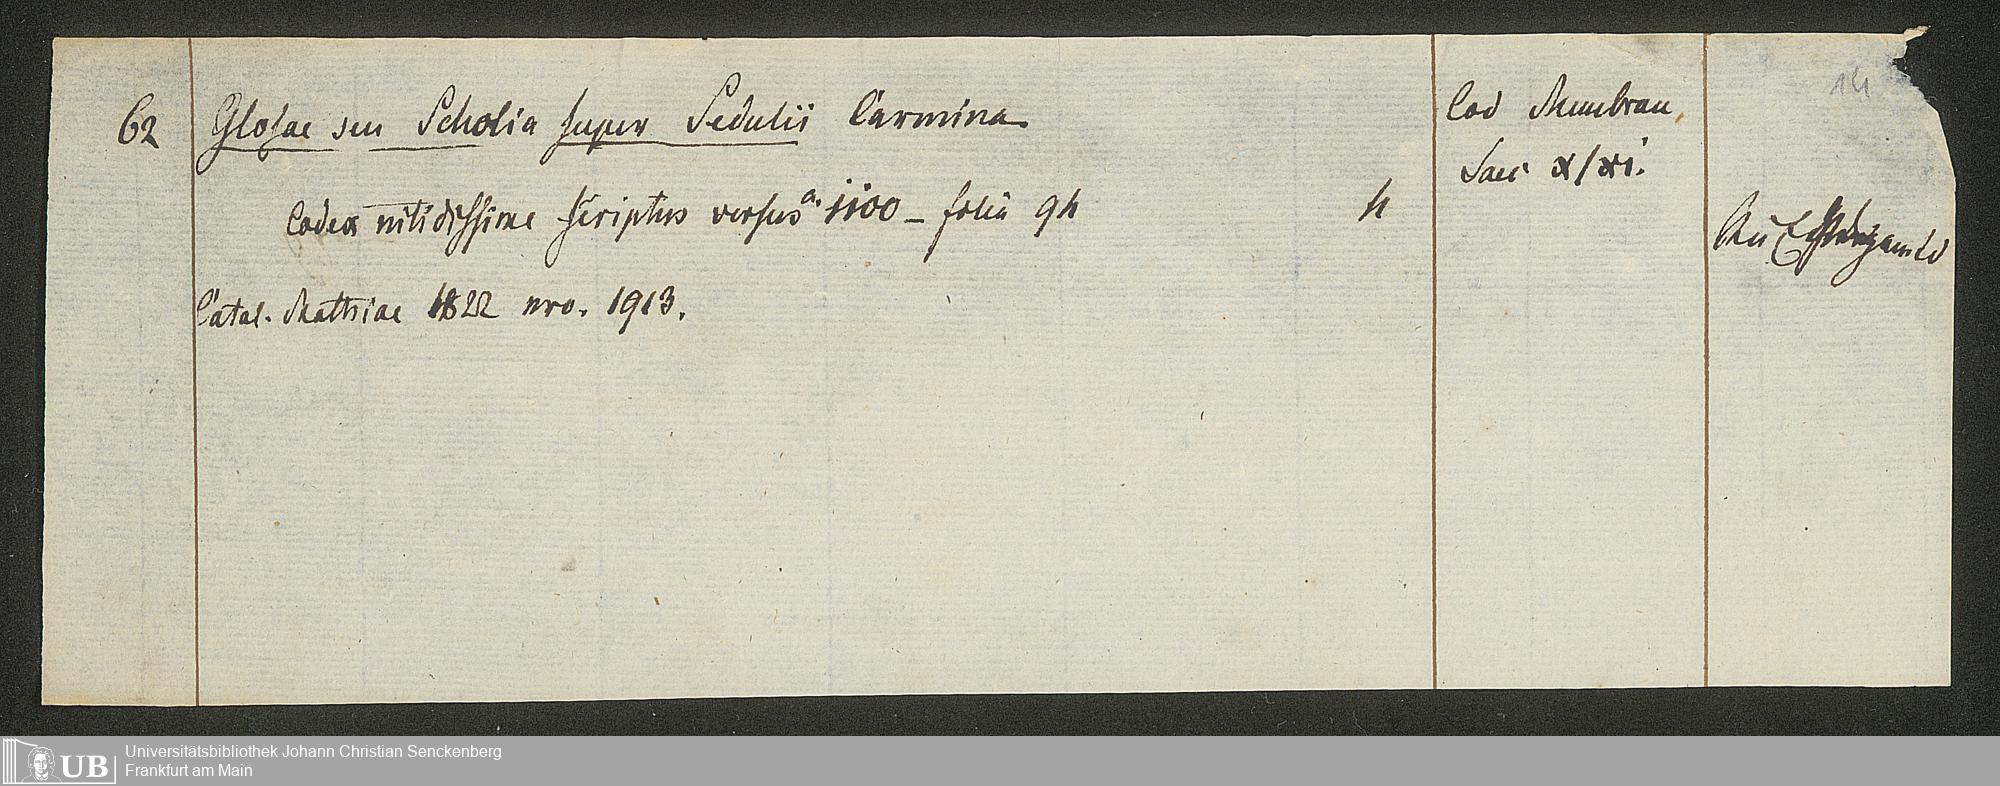 14
62 Glosae seu Scholia super Sedulii Carmina. Cod Membran.
Saec x/xi.
Codex nitidissime scriptus versus a. 1100 – folia 94 4
Catal. Matthiae 1822 nro. 1913.
Universitätsbibliothek Johann Christian Senckenberg
UB Frankfurt am Main